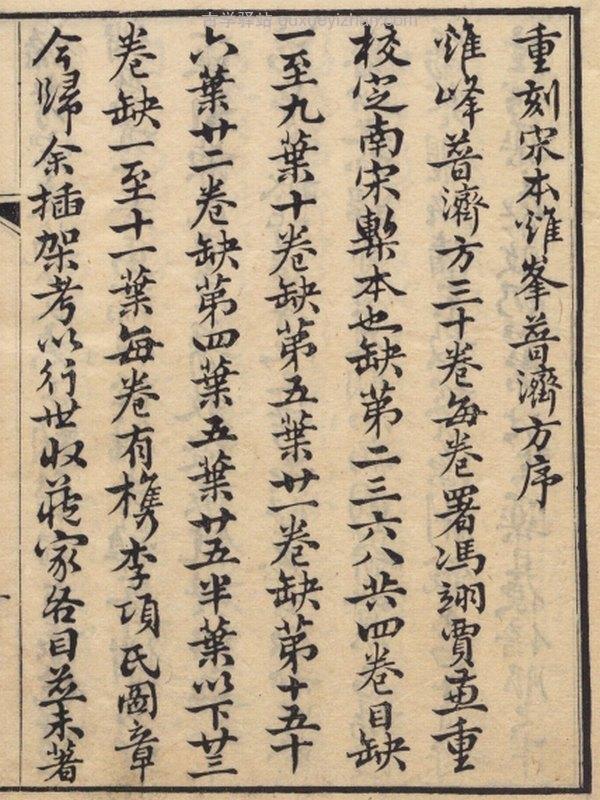 重刻宋本雞峯普濟方序
雞峰普濟方三十卷每卷署馮翊賈兼重
校定南宋槧本也缺第二三六八共四卷目缺
一至九葉十卷缺第五葉廿一卷缺第十五十
六葉廿二卷缺第四葉五葉廿五半葉以下廿三
卷缺一至十一葉每卷有檇李項氏圖章
今歸余插架考以行世收藏家各目並未著
古学驿站 guxueyizhan.com